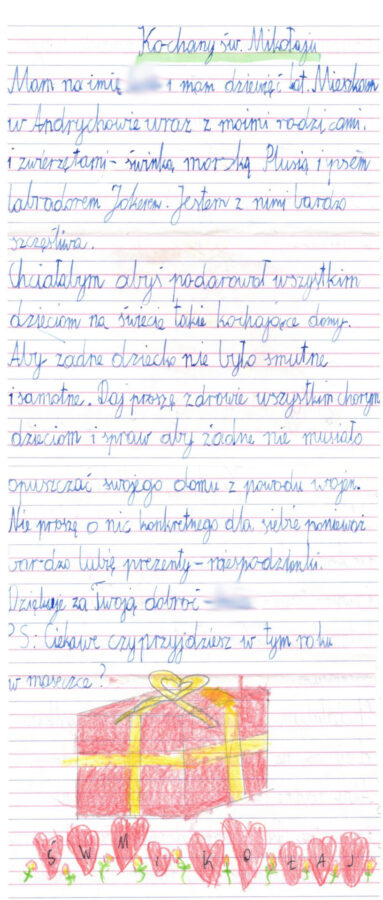 Kochany św. Mikołaju
Mam na imię i mam dziewięć lat. Mieszkam
w Andrychowie wraz z moimi rodzicami.
i zwierzętami - świnką morską Plusią i psem
labradorem Jokerem. Jestem z nimi bardzo
szczęśliwa.
Chciałabym abyś podarował wszystkim
dzieciom na świecie takie kochające domy.
Aby żadne dziecko nie było smutne
i samotne. Daj proszę zdrowie wszystkim chorym
dzieciom i spraw aby żadne nie musiało
opuszczać swojego domu z powodu wojen.
Nie proszę o nic konkretnego dla siebie ponieważ
bardzo lubię prezenty - niespodzianki.
Dziękuję za Twoją dobroć -
PS: Ciekawe czy przyjdziesz w tym roku
w maseczce?
ŚW MIKOŁAJ